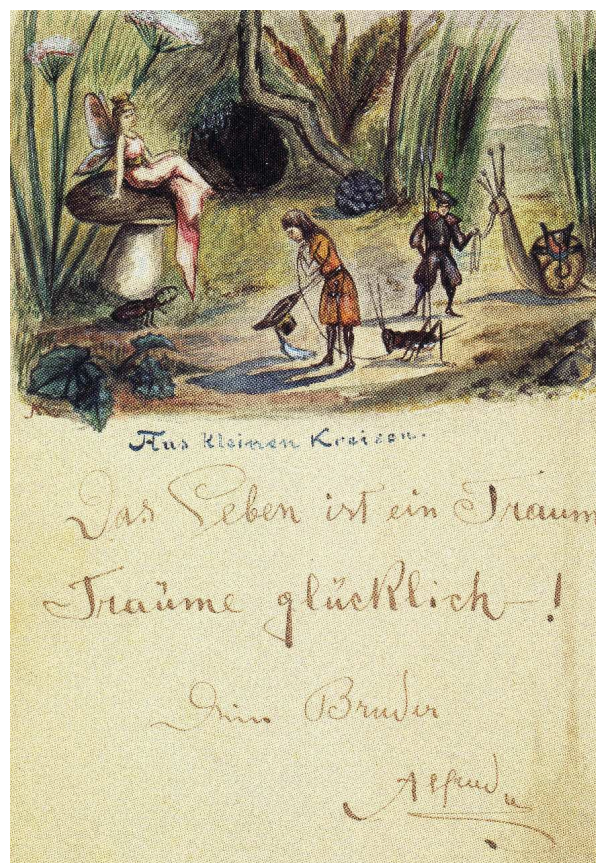 Aus kleinen Kreisen.
Das Leben ist ein Traum
Träume glücklich!
Dein Bruder
Alfred